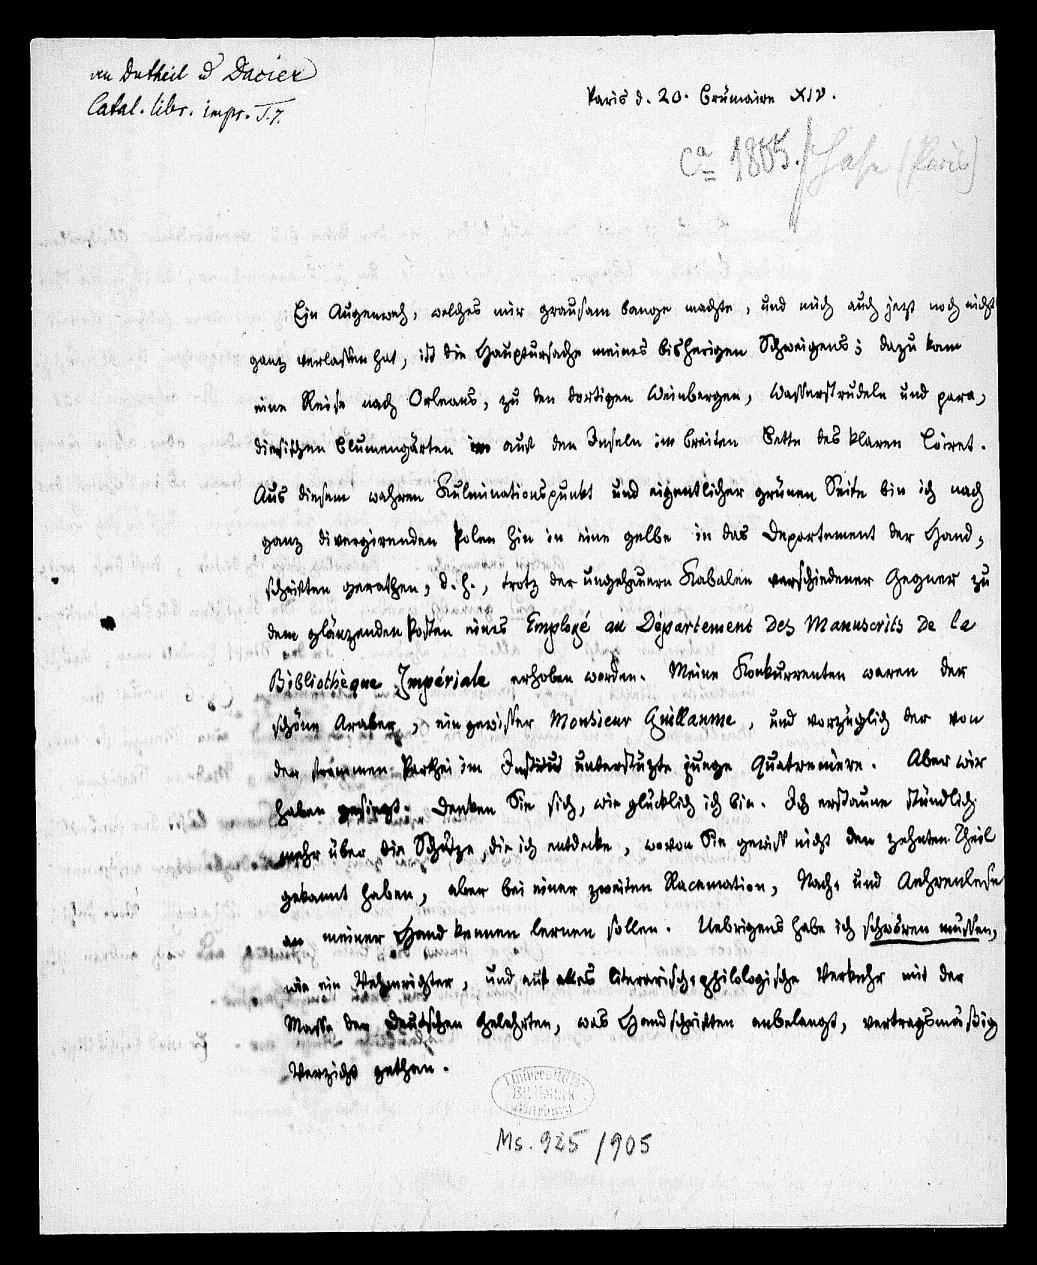 an Dutheil u Dacier
Catal. libr. impr. T. 7.
Paris d. 20. Brümaire XIV.
ca 1805. / Hase (Paris)
Ein Augenweh, welches mir grausam bange machte, und mich auch jetzt noch nicht
ganz verlassen hat, ist die Hauptursache meines bisherigen Schweigens; dazu kam
eine Reise nach Orleans, zu den dortigen Weinbergen, Wasserstrudeln und para-
diesischen Blumengärten auf den Inseln im breiten Bette des klaren Loiret.
Aus diesem wahren Kulminationspunkt und eigentlicher grünen Seite bin ich nach
ganz divergirenden Polen hin in eine gelbe in das Departement der Hand-
schriften gerathen, d. h., trotz der ungeheuern Kabalen verschiedener Gegner zu
dem glänzenden Posten eines Employé au Département des Manuscrits de la
Bibliothèque Impériale erhoben worden. Meine Konkurrenten waren der
schöne Araber, ein gewisser Monsieur Guillaume, und vorzüglich der von
der frommen Parthei im Institut unterstützte junge Quatremère. Aber wir
haben gesiegt. Denken Sie sich, wie glücklich ich bin. Ich erstaune stündlich
mehr über die Schätze, die ich entdecke, wovon Sie gewiß nicht den zehnten Theil
gekannt haben, aber bei einer zweiten Racemation, Nach- und Aehrenlese
an meiner Hand kennen lernen sollen. Uebrigens habe ich schwören müssen,
wie ein Vehmrichter, und auf alles literarisch-philologische Verkehr mit der
Masse der Deutschen Gelehrten, was Handschriften anbelangt, vertragsmäßig
Verzicht gethan.
Universitäts-
Bibliothek
Marburg
Ms. 925/905